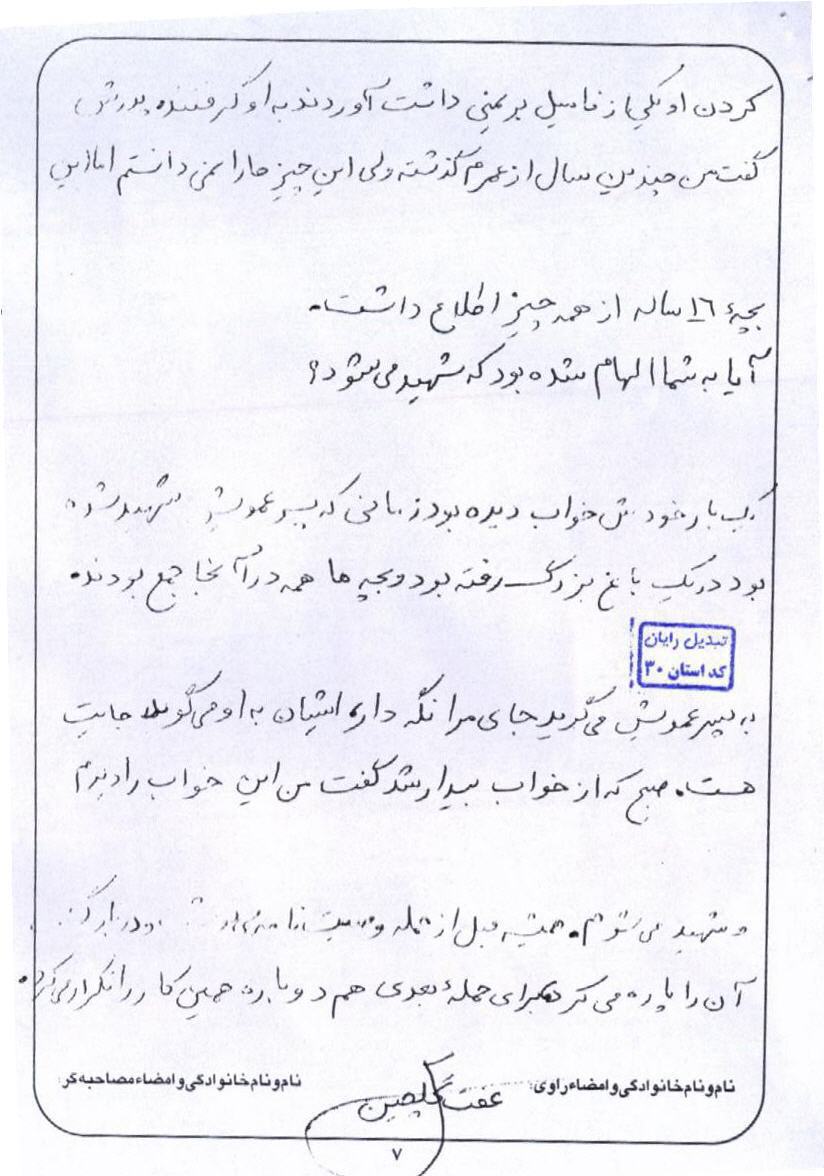 کردن او یکی از فامیل بر نمی داشت آوردند به او گرفتند پدرش
گفت من چندین سال از عمرم گذشته ولی این چیز ها را نمی دانستم اما این
بچهٔ ۱۶ ساله از همه چیز اطلاع داشت.
آیا به شما الهام شده بود که شهید می شود؟
یک بار خودش خواب دیده بود زمانی که پسر عمویش شهید شده
بود در یک باغ بزرگ رفته بود و بچه ها همه در آنجا جمع بودند.
تبدیل رایان
کد استان ۳۰
به پسر عمویش می گوید جای مرا نگه دار، ایشان به او می گوید جایت
هست. صبح که از خواب بیدار شد گفت من این خواب را دیدم
و شهید می شوم. همیشه قبل از حمله وصیت نامه
آن را پاره می کرد برای حملهٔ بعدی هم دوباره همین کار را تکرار می کرد.
نام و نام خانوادگی و امضاء راوی: عفت گلچین
نام و نام خانوادگی و امضاء مصاحبه گر:
۷